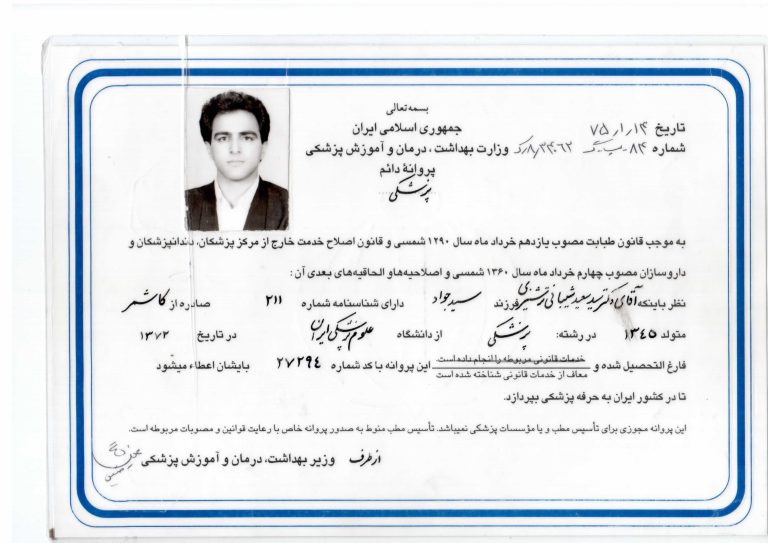 بسمه‌تعالی
جمهوری اسلامی ایران
وزارت بهداشت، درمان و آموزش پزشکی
پروانهٔ دائم
پزشکی
تاریخ ۷۵/۱/۱۴
شماره
به موجب قانون طبابت مصوب یازدهم خرداد ماه سال ۱۲۹۰ شمسی و قانون اصلاح خدمت خارج از مرکز پزشکان، دندانپزشکان و
داروسازان مصوب چهارم خرداد ماه سال ۱۳۶۰ شمسی و اصلاحیه‌ها و الحاقیه‌های بعدی آن :
نظر باینکه آقای دکتر سید سعید شیبانی فرزند سید جواد دارای شناسنامه شماره ۲۱۱ صادره از کاشمر
متولد ۱۳۴۵ در رشته: پزشکی از دانشگاه علوم پزشکی ایران در تاریخ ۱۳۷۲
فارغ التحصیل شده و خدمات قانونی مربوطه را انجام داده است. این پروانه با کد شماره ۲۷۲۹۴ بایشان اعطاء میشود
معاف از خدمات قانونی شناخته شده است
تا در کشور ایران به حرفه پزشکی بپردازد.
این پروانه مجوزی برای تأسیس مطب و یا مؤسسات پزشکی نمیباشد. تأسیس مطب منوط به صدور پروانه خاص با رعایت قوانین و مصوبات مربوطه است.
از طرف وزیر بهداشت، درمان و آموزش پزشکی